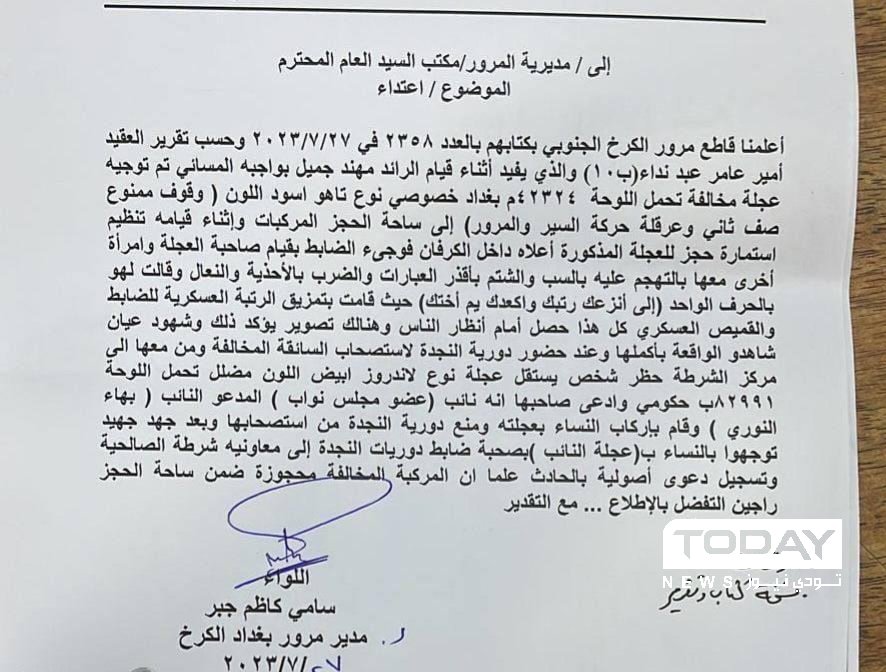 إلى / مديرية المرور/مكتب السيد العام المحترم
الموضوع / اعتداء
أعلمنا قاطع مرور الكرخ الجنوبي بكتابهم بالعدد ٢٣٥٨ في ٢٠٢٣/٧/٢٧ وحسب تقرير العقيد
أمير عامر عبد نداء(ب١٠) والذي يفيد أثناء قيام الرائد مهند جميل بواجبه المسائي تم توجيه
عجلة مخالفة تحمل اللوحة ٤٢٣٢٤م بغداد خصوصي نوع تاهو اسود اللون ( وقوف ممنوع
صف ثاني وعرقلة حركة السير والمرور) إلى ساحة الحجز المركبات وإثناء قيامه تنظيم
استمارة حجز للعجلة المذكورة أعلاه داخل الكرفان فوجىء الضابط بقيام صاحبة العجلة وامرأة
أخرى معها بالتهجم عليه بالسب والشتم بأقذر العبارات والضرب بالأحذية والنعال وقالت لهو
بالحرف الواحد (إلى أنزعك رتبك واكعدك يم أختك) حيث قامت بتمزيق الرتبة العسكرية للضابط
والقميص العسكري كل هذا حصل أمام أنظار الناس وهنالك تصوير يؤكد ذلك وشهود عيان
شاهدو الواقعة بأكملها وعند حضور دورية النجدة لاستصحاب السائقة المخالفة ومن معها الى
مركز الشرطة حظر شخص يستقل عجلة نوع لاندروز ابيض اللون مضلل تحمل اللوحة
٨٢٩٩١ب حكومي وادعى صاحبها انه نائب (عضو مجلس نواب ) المدعو النائب ( بهاء
النوري ) وقام بإركاب النساء بعجلته ومنع دورية النجدة من استصحابها وبعد جهد جهيد
توجهوا بالنساء ب(عجلة النائب )بصحبة ضابط دوريات النجدة إلى معاونيه شرطة الصالحية
وتسجيل دعوى أصولية بالحادث علما ان المركبة المخالفة محجوزة ضمن ساحة الحجز
راجين التفضل بالإطلاع ... مع التقدير
اللواء
سامي كاظم جبر
مدير مرور بغداد الكرخ
٢٠٢٣/٧/٢٧
نسخة كتاب وتقرير
TODAY
NEWS تودي نيوز